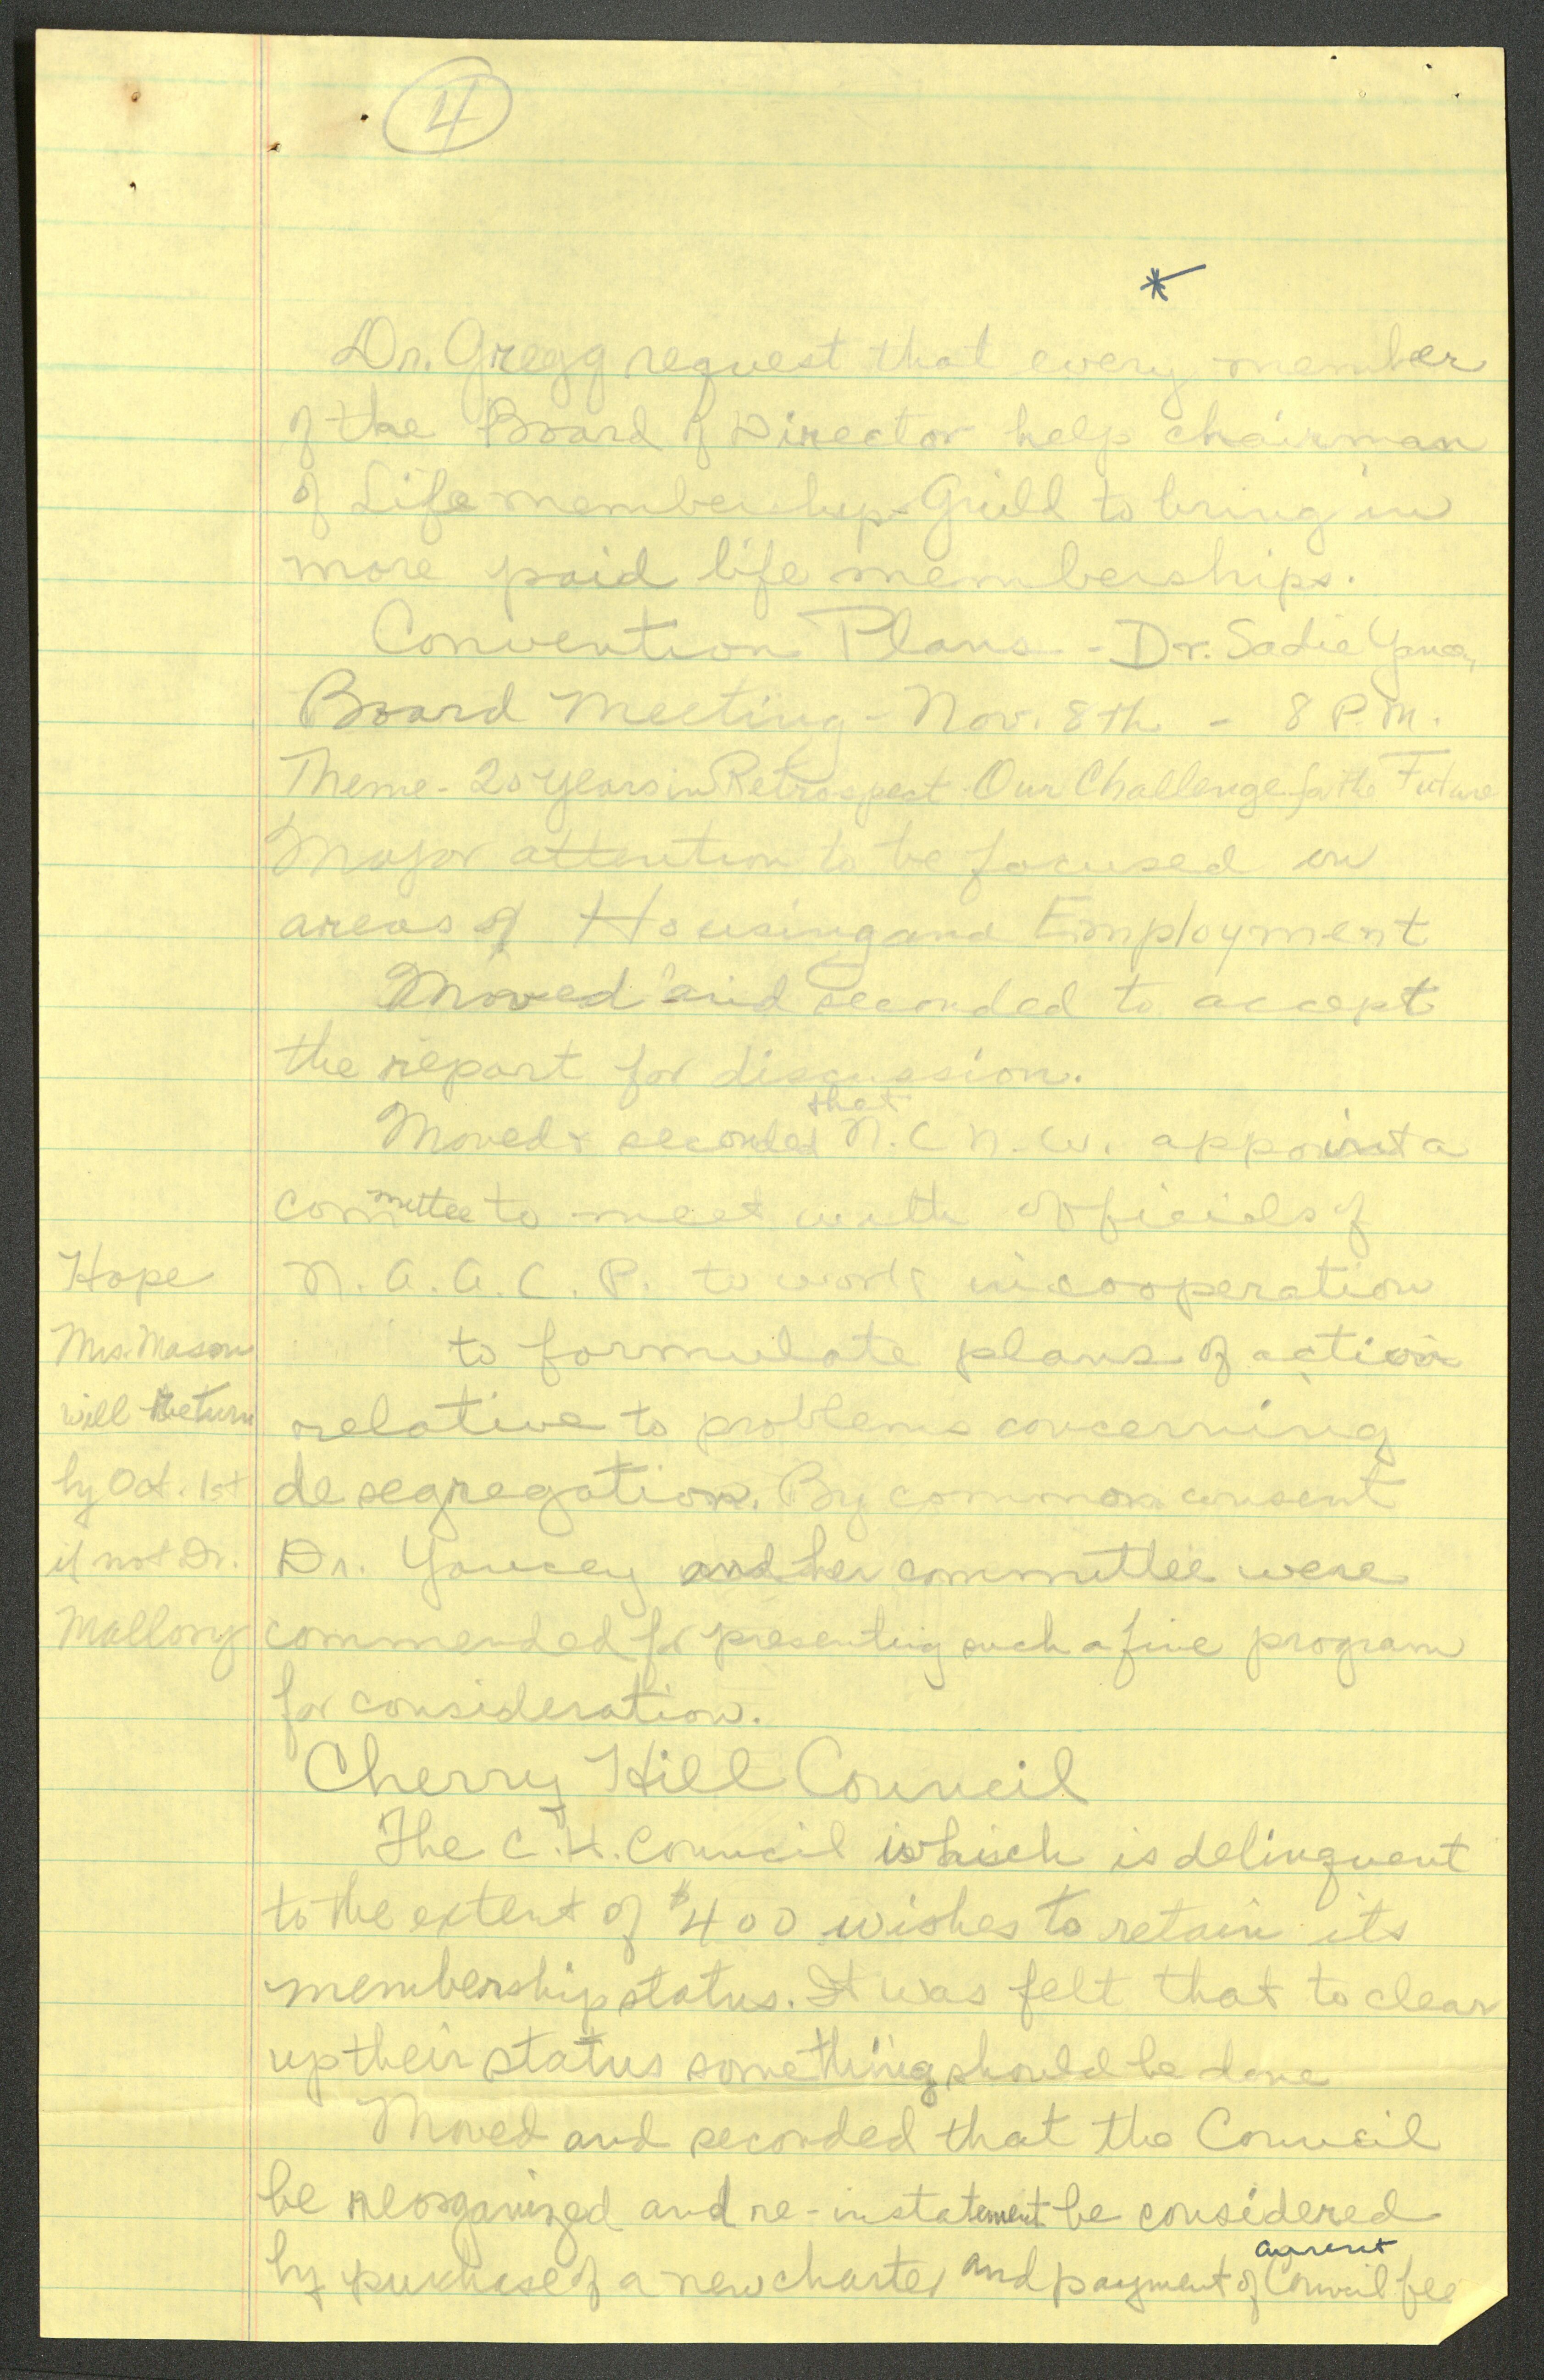 4
*
Dr. Gregg request that every member
of the Board of Director help chairman
of Life membership Guild to bring in
more paid life memberships.
Convention Plans - Dr. Sadie Yancey
Board Meeting - Nov. 8th - 8 P.M.
Theme - 20 years in Retrospect Our Challenge for the Future
Major attention to be focused on
areas of Housing and Employment
Moved and seconded to accept
the report for discussion.
Moved & seconded that N.C.N.W. appoint a
committee to meet with officials of
N.A.A.C.P. to work in cooperation
to formulate plans of action
relative to problems concerning
desegregation. By common consent
Dr. Yancey and her committee were
commended for presenting such a fine program
for consideration.
Hope
Mrs. Mason
will return
by Oct. 1st
if not Dr.
Mallory
Cherry Hill Council
The C.H. Council which is delinquent
to the extent of $400 wishes to retain its
membership status. It was felt that to clear
up their status something should be done
Moved and seconded that the Council
be reorganized and re-instatement be considered
by purchase of a new charter and payment of current Council fee